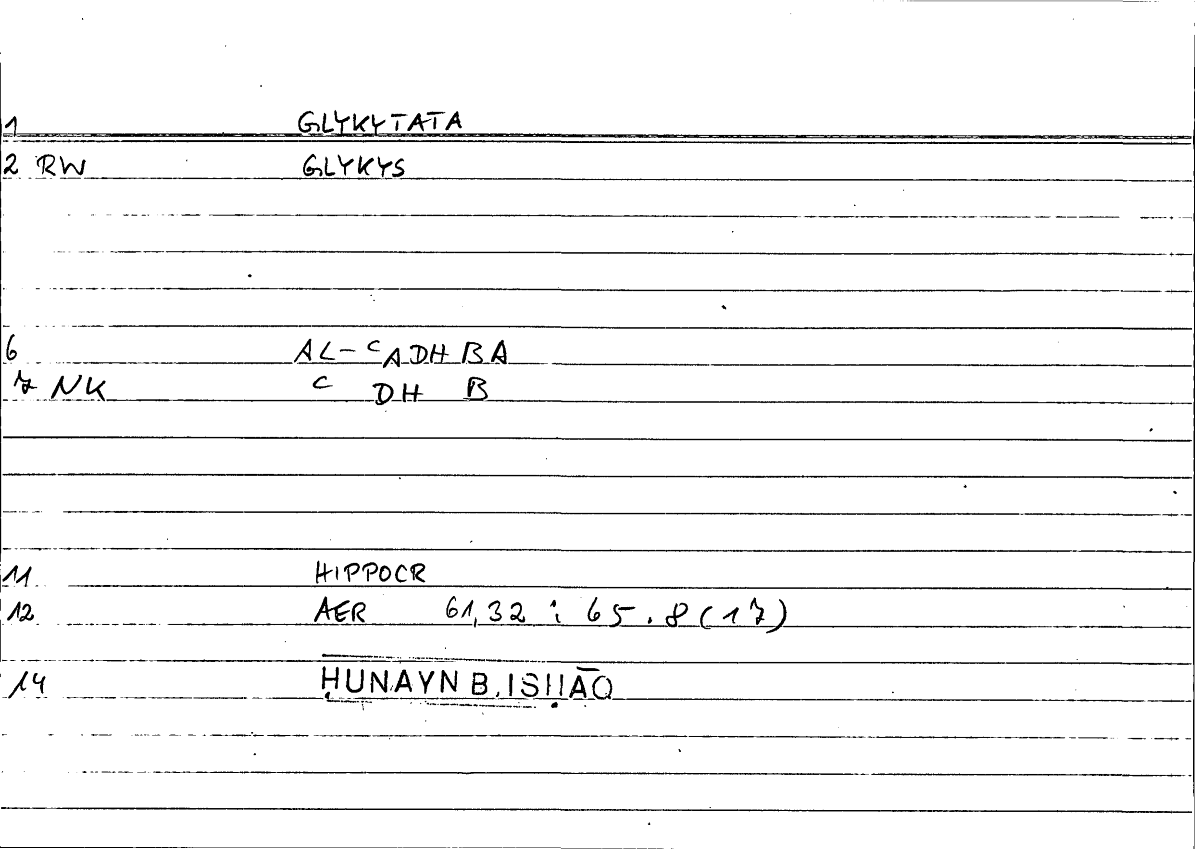 1 GLYKYTATA
2 RW GLYKYS
6 AL-ᶜADHBA
7 NK ᶜ DH B
11 HIPPOCR
12 AER 61,32 ; 65.8(17)
14 ḤUNAYN B. ISḤĀQ